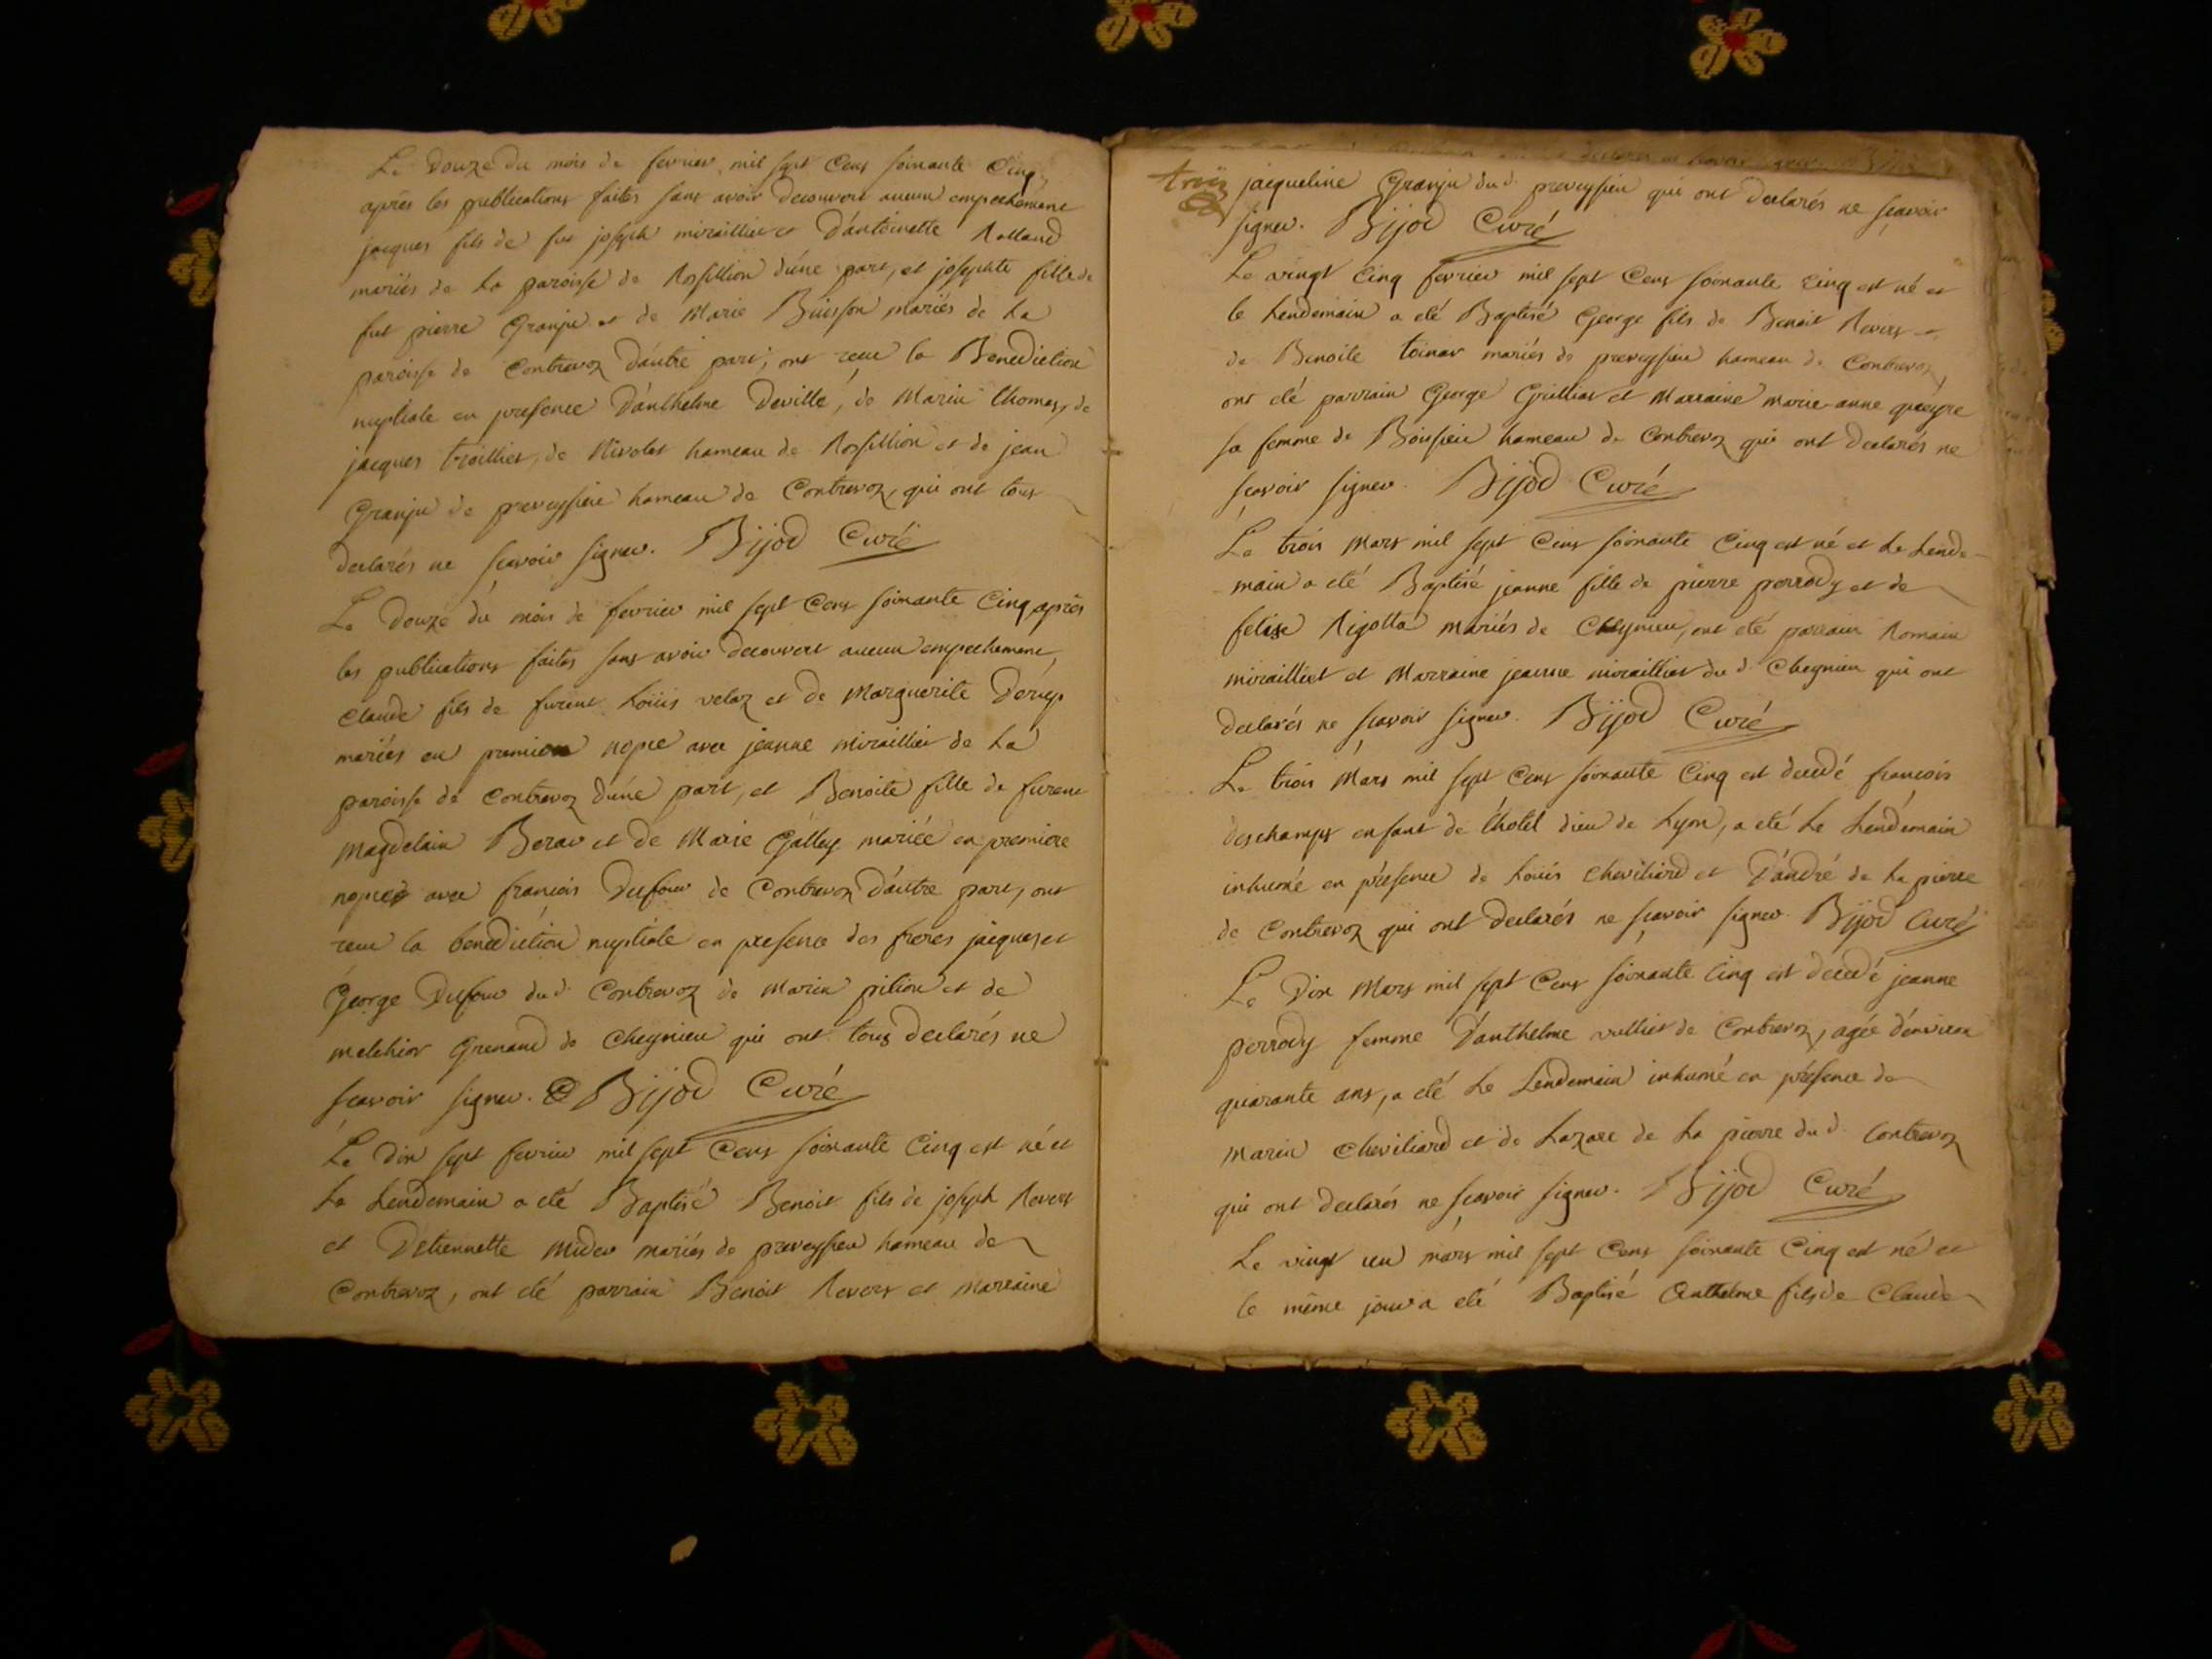 Le douze du mois de fevrier mil sept cens soixante cinq,
après les publications faites sans avoir decouvert aucun empechement
jacques fils de fut joseph miraillier et d'antoinette Rolland
mariés de la paroisse de Rossillion d'une part, et josephte fille de
fut pierre Granju et de Marie Buisson mariés de la
paroisse de Contrevoz d'autre part, ont recu la Benediction
nuptiale en presence d'anthelme Deville, de Marin thomas, de
jacques trollier, de Nivolet hameau de Rossillion et de jean
Granju de preveyssieu hameau de Contrevoz, qui ont tous
declarés ne scavoir signer. Bijod Curé
Le douze du mois de fevrier mil sept cens soixante cinq après
les publications faites sans avoir decouvert aucun empechement,
Claude fils de furent Loüis velaz et de Marguerite
mariés en premiere nopce avec jeanne miraillier de la
paroisse de Contrevoz d'une part, et Benoite fille de furent
Magdelain Berar et de Marie Galley mariée en premiere
nopce avec francois Dufour de Contrevoz d'autre part, ont
recu la benediction nuptiale en presence des freres jacques et
George Dufour dud. Contrevoz de Marin pilion et de
melchior Grenaud de Cheynieu qui ont tous declarés ne
scavoir signer. Bijod Curé
Le dix sept fevrier mil sept cens soixante cinq est né et
le Lendemain a eté Baptisé Benoit fils de joseph Revers
et D'etiennette Mider mariés de preveyssieu hameau de
Contrevoz, ont eté parrain Benoit Revers et marraine
trois
jacqueline Granju dud. preveyssieu qui ont declarés ne scavoir
signer. Bijod Curé
Le vingt cinq fevrier mil sept cens soixante cinq est né et
le Lendemain a eté Baptisé George fils de Benoit Revers et
de Benoite toinar mariés de preveyssieu hameau de Contrevoz,
ont eté parrain George Grillier et Marraine marie-anne
sa femme de Boissieu hameau de Contrevoz qui ont declarés ne
scavoir signer. Bijod Curé
Le trois Mars mil sept cens soixante cinq est né et le Lende-
main a eté Baptisé jeanne fille de pierre perrody et de
felise Rigotta mariés de Cheynieu, ont eté parrain Romain
miraillier et Marraine jeanne miraillier dud. Cheynieu qui ont
declarés ne scavoir signer. Bijod Curé
Le trois Mars mil sept cens soixante cinq est decedé francois
deschamps enfant de l'hotel dieu de Lyon, a eté le Lendemain
inhumé en présence de Loüis Cheviliard et D'andré de la pierre
de Contrevoz qui ont declarés ne scavoir signer. Bijod Curé
Le Dix Mars mil sept cens soixante cinq est décedé jeanne
perrody femme D'anthelme vullier de Contrevoz, agée d'environ
quarante ans, a eté le Lendemain inhumé en présence de
Marin Cheviliard et de Lazare de la pierre dud. Contrevoz
qui ont declarés ne scavoir signer. Bijod Curé
Le vingt un mars mil sept cens soixante cinq est né et
le même jour a eté Baptisé Anthelme fils de Claude